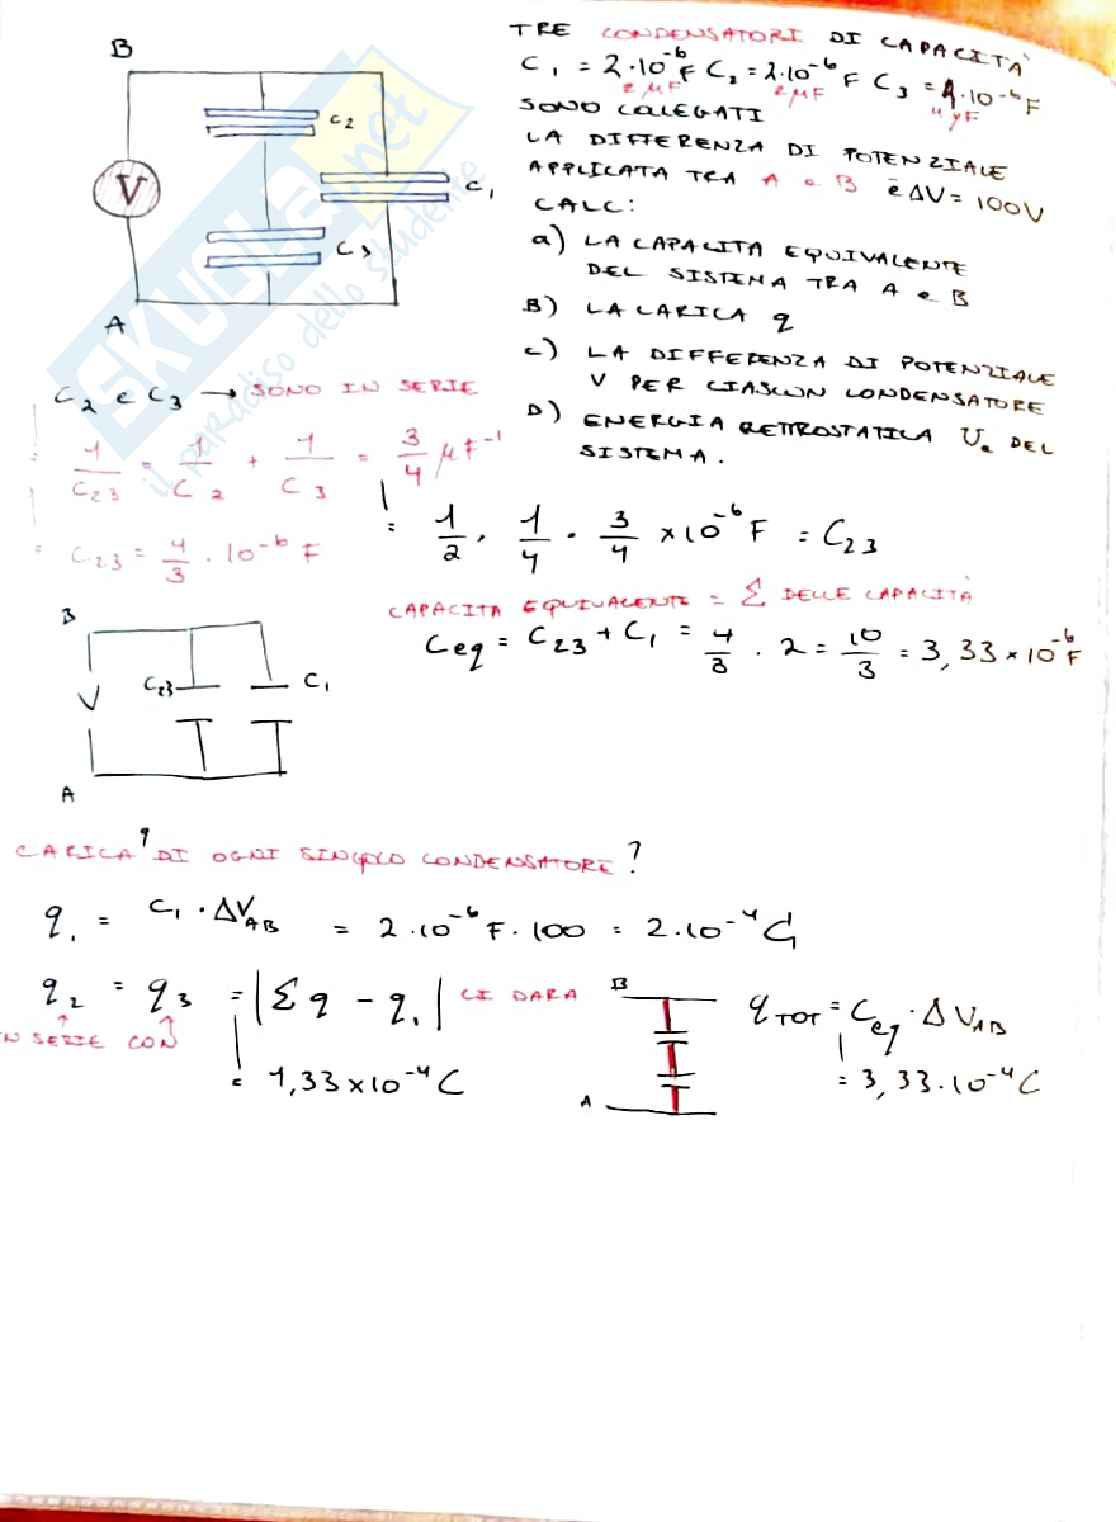 TRE CONDENSATORI DI CAPACITÀ
C₁ = 2·10⁻⁶F C₂ = 2·10⁻⁶F C₃ = 4·10⁻⁶F
2 μF 2 μF 4 μF
SONO COLEGATI
LA DIFFERENZA DI POTENZIALE
APPLICATA TRA A e B è ΔV = 100V
CALC:
a) LA CAPACITA EQUIVALENTE
DEL SISTEMA TRA A e B
B) LA CARICA q
C) LA DIFFERENZA DI POTENZIALE
V PER CIASCUN CONDENSATORE
D) ENERGIA ELETTROSTATICA Uₑ DEL
SISTEMA.
B
C₂
V
C₁
C₃
A
SKUOLA.net
il paradiso dello studente
C₂ e C₃ → SONO IN SERIE
= 1/C₂₃ = 1/C₂ + 1/C₃ = 3/4 μF⁻¹
= 1/2 · 1/4 = 3/4 ×10⁻⁶ F = C₂₃
= C₂₃ = 4/3 · 10⁻⁶ F
CAPACITA EQUIVALENTE = Σ DELLE CAPACITÀ
Ceq = C₂₃ + C₁ = 4/3 · 2 = 10/3 = 3,33 × 10⁻⁶ F
B
C₂₃
C₁
V
A
CARICA q DI OGNI SINGOLO CONDENSATORE?
q₁ = C₁ · ΔV_AB = 2·10⁻⁶ F · 100 = 2·10⁻⁴ C
q₂ = q₃ = |Σq - q₁| CI DARA
IN SERIE CON
= 1,33×10⁻⁴ C
B
A
q_TOT = Ceq · ΔV_AB
= 3,33·10⁻⁴ C